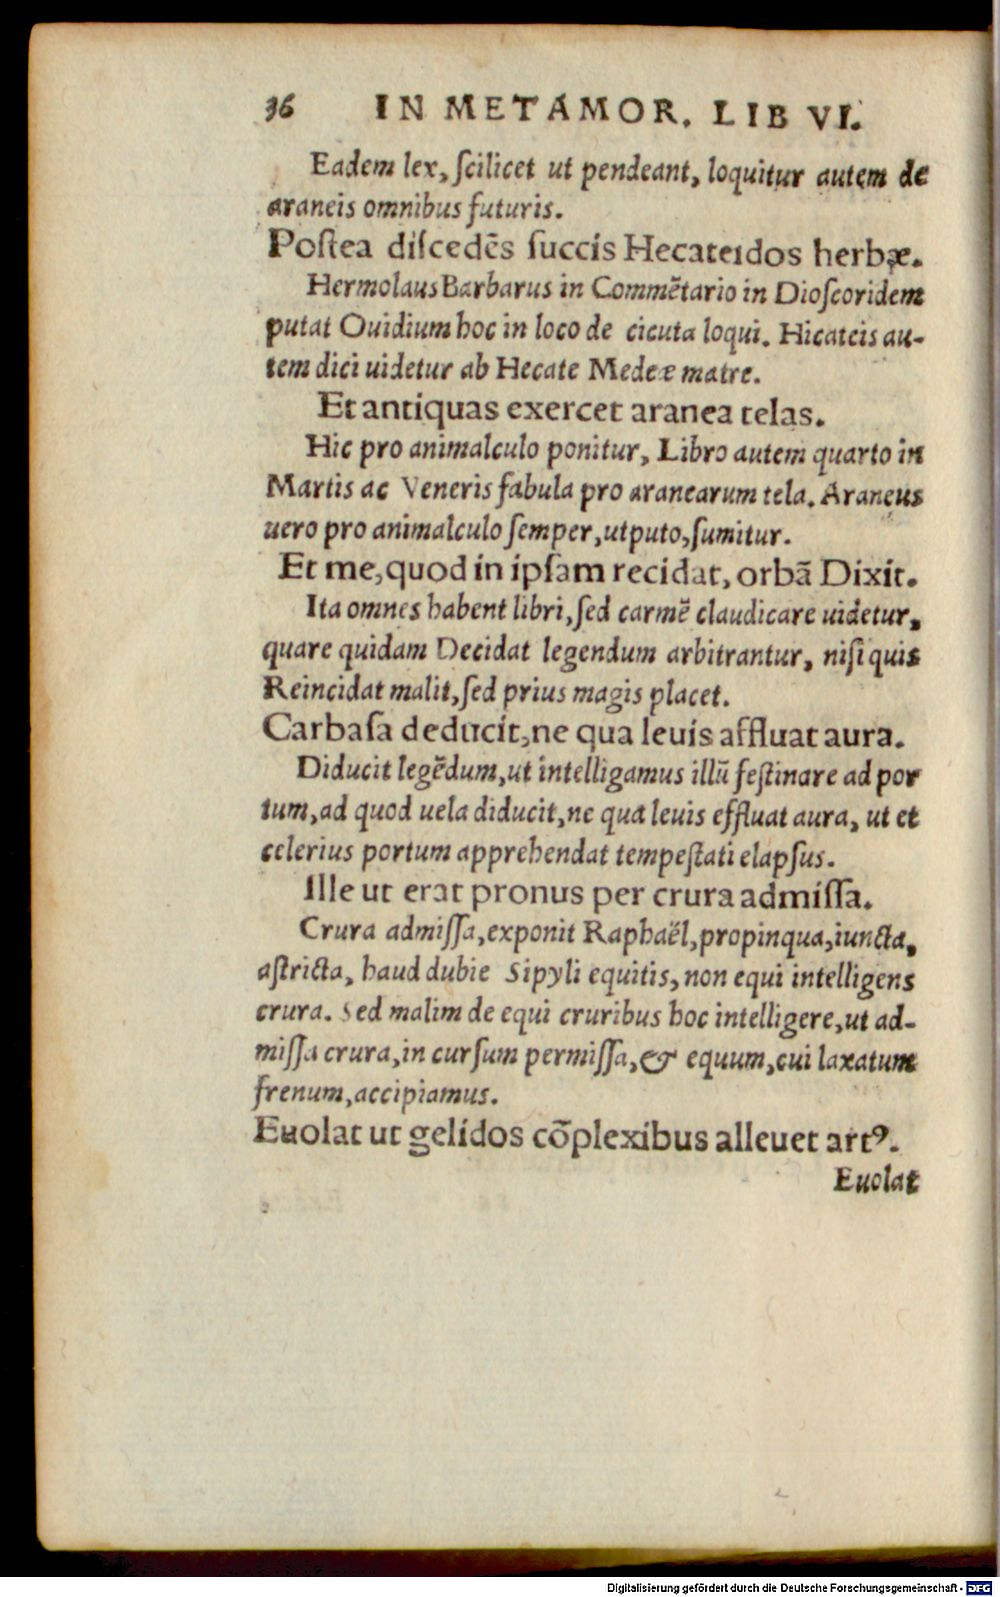 36 IN METAMOR. LIB VI.
Eadem lex, ſcilicet ut pendeant, loquitur autem de
araneis omnibus futuris.
Poſtea diſcedẽs ſuccis Hecateidos herbæ.
Hermolaus Barbarus in Commẽtario in Dioſcoridem
putat Ouidium hoc in loco de cicuta loqui. Hicateis au-
tem dici uidetur ab Hecate Medeæ matre.
Et antiquas exercet aranea telas.
Hic pro animalculo ponitur, Libro autem quarto in
Martis ac Veneris fabula pro aranearum tela. Araneus
uero pro animalculo ſemper, ut puto, ſumitur.
Et me, quod in ipſam recidat, orbã Dixit.
Ita omnes habent libri, ſed carmẽ claudicare uidetur,
quare quidam Decidat legendum arbitrantur, niſi quis
Reincidat malit, ſed prius magis placet.
Carbaſa deducit, ne qua leuis affluat aura.
Diducit legẽdum, ut intelligamus illũ feſtinare ad por
tum, ad quod uela diducit, ne qua leuis effluat aura, ut et
celerius portum apprehendat tempeſtati elapſus.
Ille ut erat pronus per crura admiſſa.
Crura admiſſa, exponit Raphaël, propinqua, iuncta,
aſtricta, haud dubie Sipyli equitis, non equi intelligens
crura. Sed malim de equi cruribus hoc intelligere, ut ad-
miſſa crura, in curſum permiſſa, & equum, cui laxatum
frenum, accipiamus.
Euolat ut gelidos cõplexibus alleuet artꝰ.
Euolat
Digitalisierung gefördert durch die Deutsche Forschungsgemeinschaft - DFG